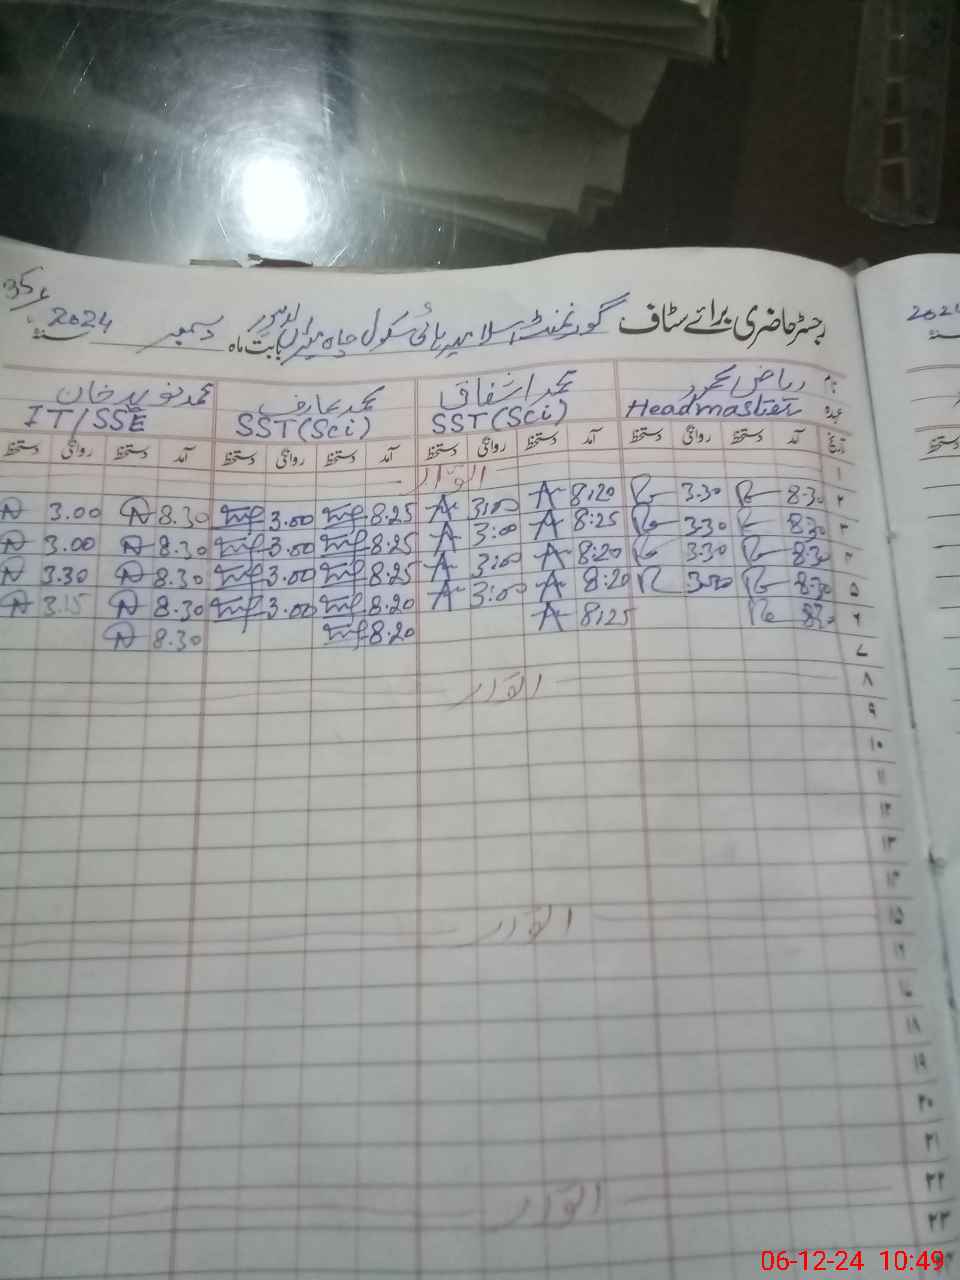 رجسٹر حاضری برائے سٹاف گورنمنٹ اسلامیہ ہائی سکول چاہ میراں لاہور بابت ماہ دسمبر 2024
35
نام ریاض محمود محمد اشفاق محمد عارف محمد نوید خان
عہدہ Headmaster SST(Sci) SST(Sci) IT/SSE
تاریخ آمد دستخط روانگی دستخط آمد دستخط روانگی دستخط آمد دستخط روانگی دستخط آمد دستخط روانگی دستخط
۱ اتوار
۲ 8.30 3.30 8:20 3:00 8.25 3.00 8.30 3.00
۳ 8.30 3.30 8:25 3:00 8.25 3.00 8.30 3.00
۴ 8.30 3.30 8:20 3:00 8.25 3.00 8.30 3.30
۵ 8.30 3.30 8:20 3:00 8.20 3.00 8.30 3.15
۶ 8.30 8:25 8.20 8.30
۷
۸ اتوار
۹
۱۰
۱۱
۱۲
۱۳
۱۴
۱۵ اتوار
۱۶
۱۷
۱۸
۱۹
۲۰
۲۱
۲۲ اتوار
۲۳
06-12-24 10:49